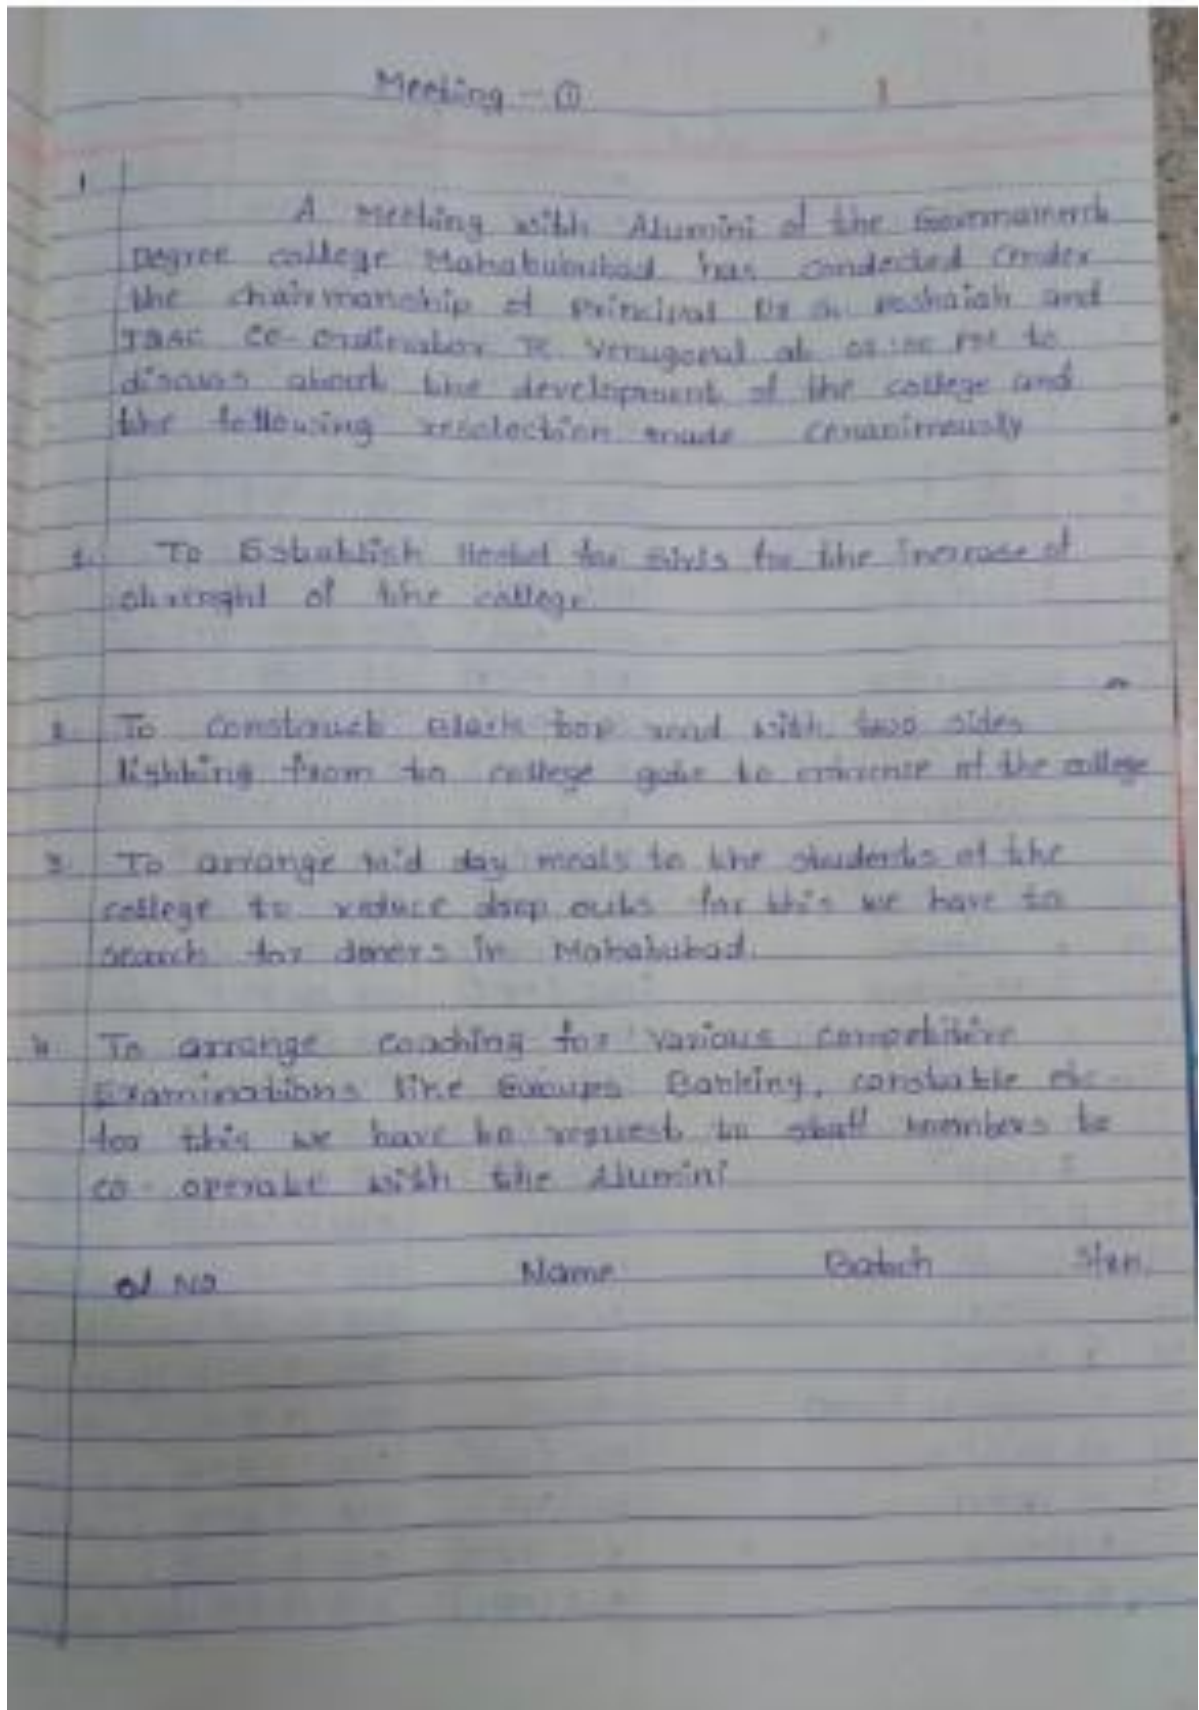 Meeting - ① 1
1
A Meeting with Alumini of the Governament
Degree college Mahabububad has condected under
the chairmanship of Principal Dr G. Poshaiah and
Co-ordinator Venugopal at to
discuss about the development of the college and
the following resolection made unanimously
1. To Establish Hostel for Girls for the increase of
strenght of the college.
2. To construct Black top road with two sides
lighting from to college gate to entrence of the college
3. To arrange mid day meals to the students of the
college to reduce drop outs for this we have to
search for doners in Mahabubad.
4. To arrange coaching for various competitive
Examinations like Groups Banking, constable etc-
for this we have to request to staff members to
co-operate with the Alumini
Sl No Name Batch